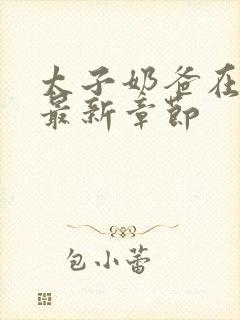 太子奶爸在
最新章节
包小蕾